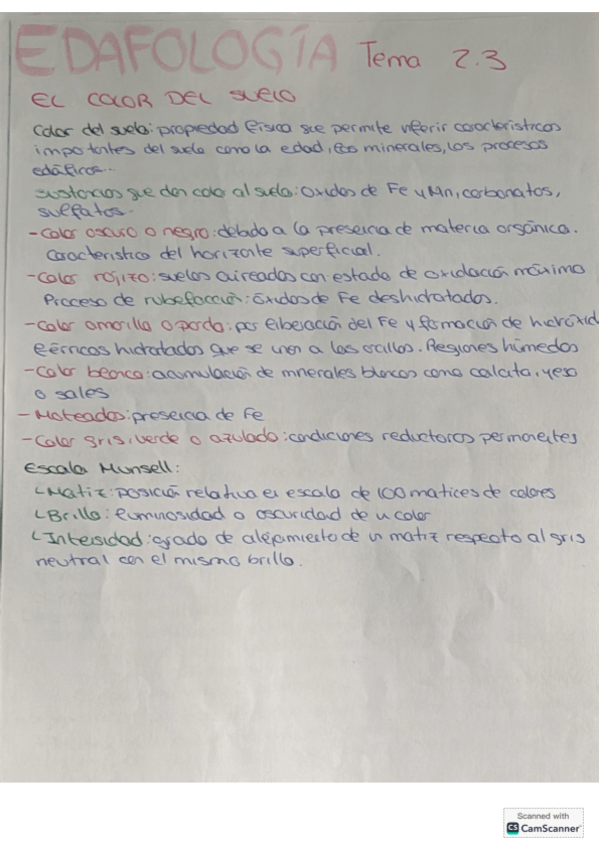 EDAFOLOGÍA Tema 2.3
EL COLOR DEL SUELO
Color del suelo: propiedad física que permite inferir características
importantes del suelo como la edad, los minerales, los procesos
edáficos...
Sustancias que dan color al suelo: Óxidos de Fe y Mn, carbonatos,
sulfatos.
-Color oscuro o negro: debido a la presencia de materia orgánica.
Característico del horizonte superficial.
-Color rojizo: suelos aireados con estado de oxidación máximo
Proceso de rubefacción: óxidos de Fe deshidratados.
-Color amarillo o pardo: por liberación del Fe y formación de hidróxid
férricos hidratados que se unen a las arcillas. Regiones húmedas
-Color blanco: acumulación de minerales blancos como calcita, yeso
o sales
-Moteados: presencia de Fe
-Color gris, verde o azulado: condiciones reductoras permanentes
Escala Munsell:
└Matiz: posición relativa en escala de 100 matices de colores
└Brillo: luminosidad o oscuridad de un color
└Intensidad: grado de alejamiento de un matiz respecto al gris
neutral con el mismo brillo.
Scanned with
CS CamScanner